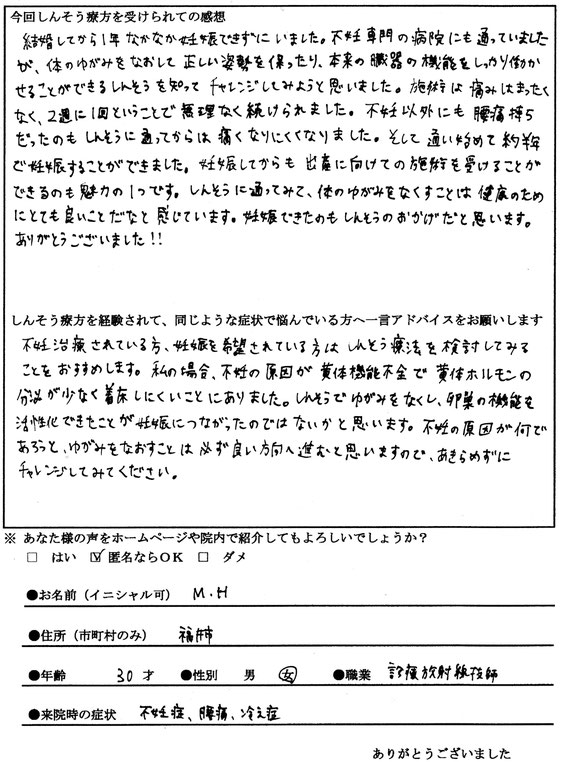 今回しんそう療方を受けられての感想
結婚してから1年なかなか妊娠できずにいました。不妊専門の病院にも通っていました
が、体のゆがみをなおして正しい姿勢を保ったり、本来の臓器の機能をしっかり働か
せることができるしんそうを知ってチャレンジしてみようと思いました。施術は痛みはまったく
なく、2週に1回ということで無理なく続けられました。不妊以外にも腰痛持ち
だったのもしんそうに通ってからは痛くなりにくくなりました。そして通い始めて約半年
で妊娠することができました。妊娠してからも出産に向けての施術を受けることが
できるのも魅力の1つです。しんそうに通ってみて、体のゆがみをなくすことは健康のため
にとても良いことだなと感じています。妊娠できたのもしんそうのおかげだと思います。
ありがとうございました!!
しんそう療方を経験されて、同じような症状で悩んでいる方へ一言アドバイスをお願いします
不妊治療されている方、妊娠を希望されている方はしんそう療法を検討してみる
ことをおすすめします。私の場合、不妊の原因が黄体機能不全で黄体ホルモンの
分泌が少なく着床しにくいことにありました。しんそうでゆがみをなくし、卵巣の機能を
活性化できたことが妊娠につながったのではないかと思います。不妊の原因が何で
あろうと、ゆがみをなおすことは必ず良い方向へ進むと思いますので、あきらめずに
チャレンジしてみてください。
※ あなた様の声をホームページや院内で紹介してもよろしいでしょうか?
□ はい ☑ 匿名ならOK □ ダメ
●お名前（イニシャル可） M.H
●住所（市町村のみ） 福井市
●年齢 30 才 ●性別 男 女 ●職業 診療放射線技師
●来院時の症状 不妊症、腰痛、冷え症
ありがとうございました